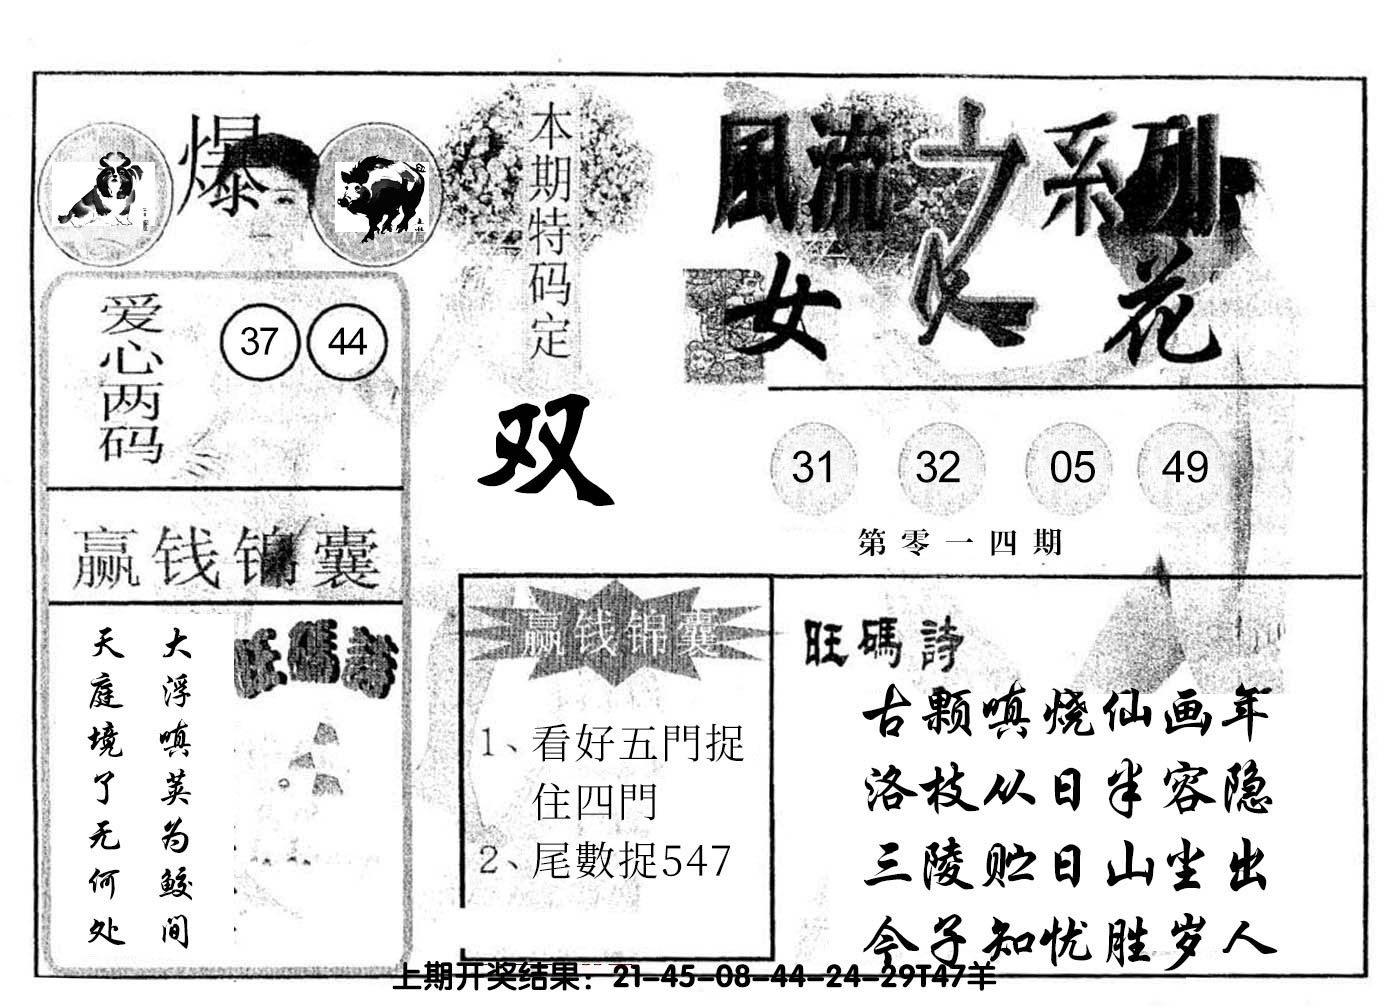 爆
本期特码定
双
風流之系列
女人花
爱心两码
37 44
31 32 05 49
第零一四期
赢钱锦囊
大浮嗔英为鲛间
天庭境了无何处
旺碼詩
赢钱锦囊
1、看好五門捉
住四門
2、尾數捉547
旺碼詩
古颗嗔烧仙画年
洛枝从日半容隐
三陵贮日山尘出
令子知忧胜岁人
上期开奖结果：21-45-08-44-24-29T47羊